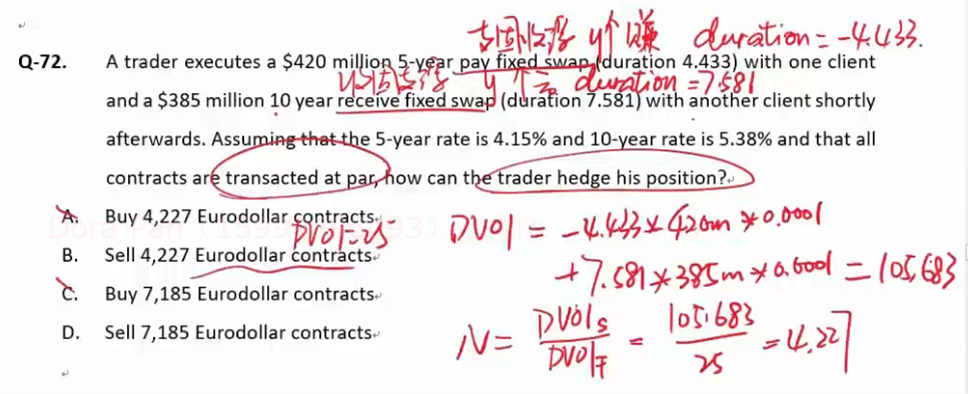 支固收浮 y个赚 duration = -4.433.
Q-72. A trader executes a $420 million 5-year pay fixed swap (duration 4.433) with one client
y个亏 duration = 7.581
and a $385 million 10 year receive fixed swap (duration 7.581) with another client shortly
afterwards. Assuming that the 5-year rate is 4.15% and 10-year rate is 5.38% and that all
contracts are transacted at par, how can the trader hedge his position?
A. Buy 4,227 Eurodollar contracts.
DV01=25
DV01 = -4.433*420m*0.0001
B. Sell 4,227 Eurodollar contracts.
+7.581*385m*0.0001 = 105.683
C. Buy 7,185 Eurodollar contracts.
D. Sell 7,185 Eurodollar contracts.
N = DV01s / DV01F = 105.683 / 25 = 4.227